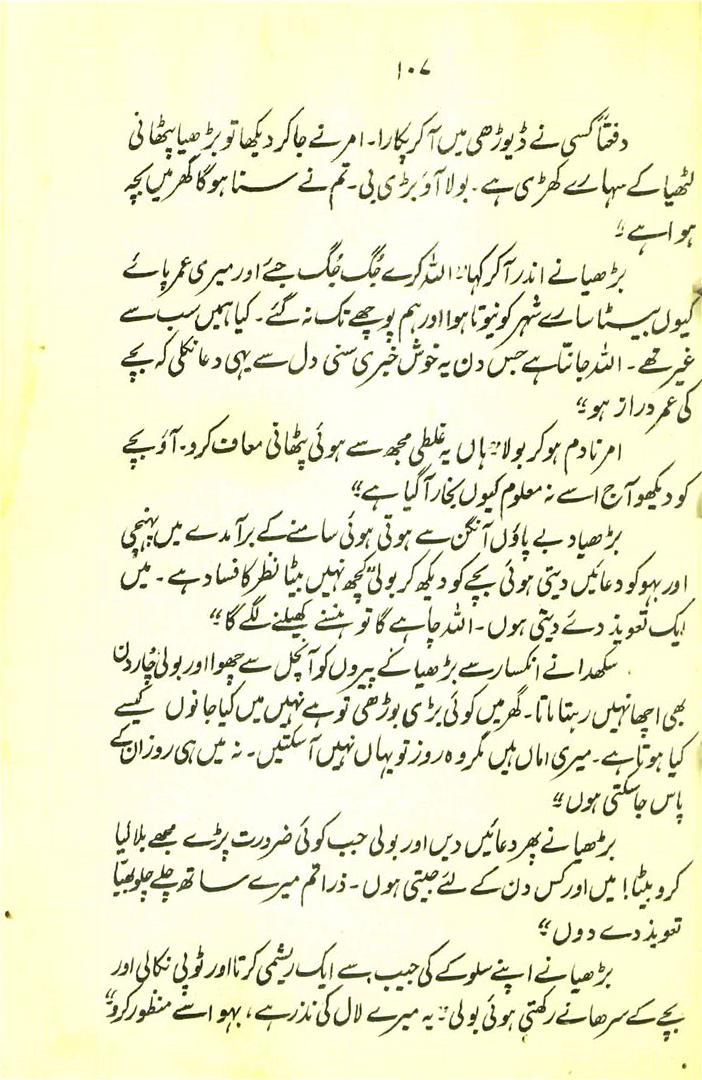 ۱۰۷
دفعتاً کسی نے ڈیوڑھی میں آکر پکارا۔ امر نے جا کر دیکھا تو بڑھیا پٹھانی
لٹھیا کے سہارے کھڑی ہے۔ بولا آؤ بڑی بی۔ تم نے سنا ہوگا گھر میں بچہ
ہوا ہے“
بڑھیا نے اندر آ کر کہا ”اللہ کرے جُگ جُگ جئے اور میری عمر پائے
کیوں بیٹا سارے شہر کو نیوتا ہوا اور ہم پوچھے تک نہ گئے۔ کیا ہمیں سب سے
غیر تھے۔ اللہ جانتا ہے جس دن یہ خوش خبری سنی دل سے یہی دعا نکلی کہ بچے
کی عمر دراز ہو“
امر نادم ہو کر بولا ”ہاں یہ غلطی مجھ سے ہوئی پٹھانی معاف کرد۔ آؤ بچے
کو دیکھو آج اسے نہ معلوم کیوں بخار آ گیا ہے“
بڑھیا دبے پاؤں آنگن سے ہوتی ہوئی سامنے کے برآمدے میں پہنچی
اور بہو کو دعائیں دیتی ہوئی بچے کو دیکھ کر بولی ”کچھ نہیں بیٹا نظر کا فساد ہے۔ میں
ایک تعویذ دئے دیتی ہوں۔ اللہ چاہے گا تو ہنسنے کھیلنے لگے گا“
سکھدا نے انکسار سے بڑھیا کے پیروں کو آنچل سے چھوا اور بولی ”چار دن
بھی اچھا نہیں رہتا ماتا۔ گھر میں کوئی بڑی بوڑھی تو ہے نہیں میں کیا جانوں کیسے
کیا ہوتا ہے۔ میری اماں ہیں مگر وہ روز تو یہاں نہیں آ سکتیں۔ نہ میں ہی روز ان کے
پاس جا سکتی ہوں“
بڑھیا نے پھر دعائیں دیں اور بولی جب کوئی ضرورت پڑے مجھے بلا لیا
کرو بیٹا! میں اور کس دن کے لئے جیتی ہوں۔ ذرا تم میرے ساتھ چلے چلو بھیّا
تعویذ دے دوں“
بڑھیا نے اپنے سلوکے کی جیب سے ایک ریشمی کرتا اور ٹوپی نکالی اور
بچے کے سرھانے رکھتی ہوئی بولی ”یہ میرے لال کی نذر ہے، بہو اسے منظور کرو“